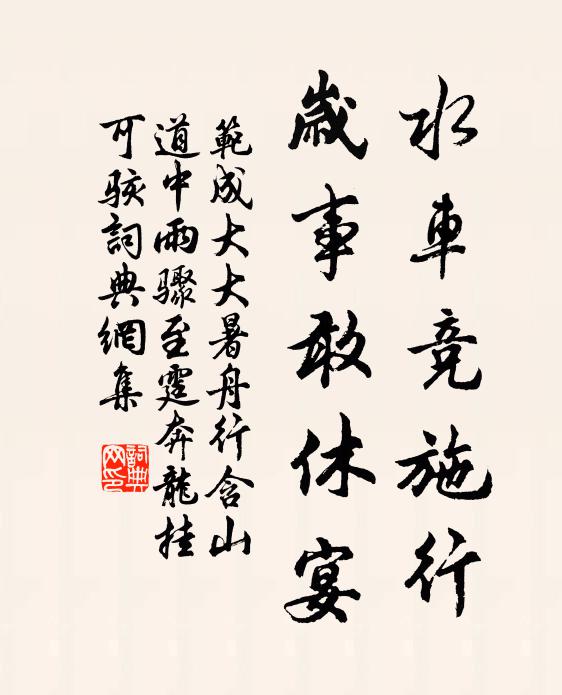 水車竞施行
歲事敢休宴
範成大大暑舟行含山
道中雨驟至霆奔龍挂
可駭詞典網集
詞典网印